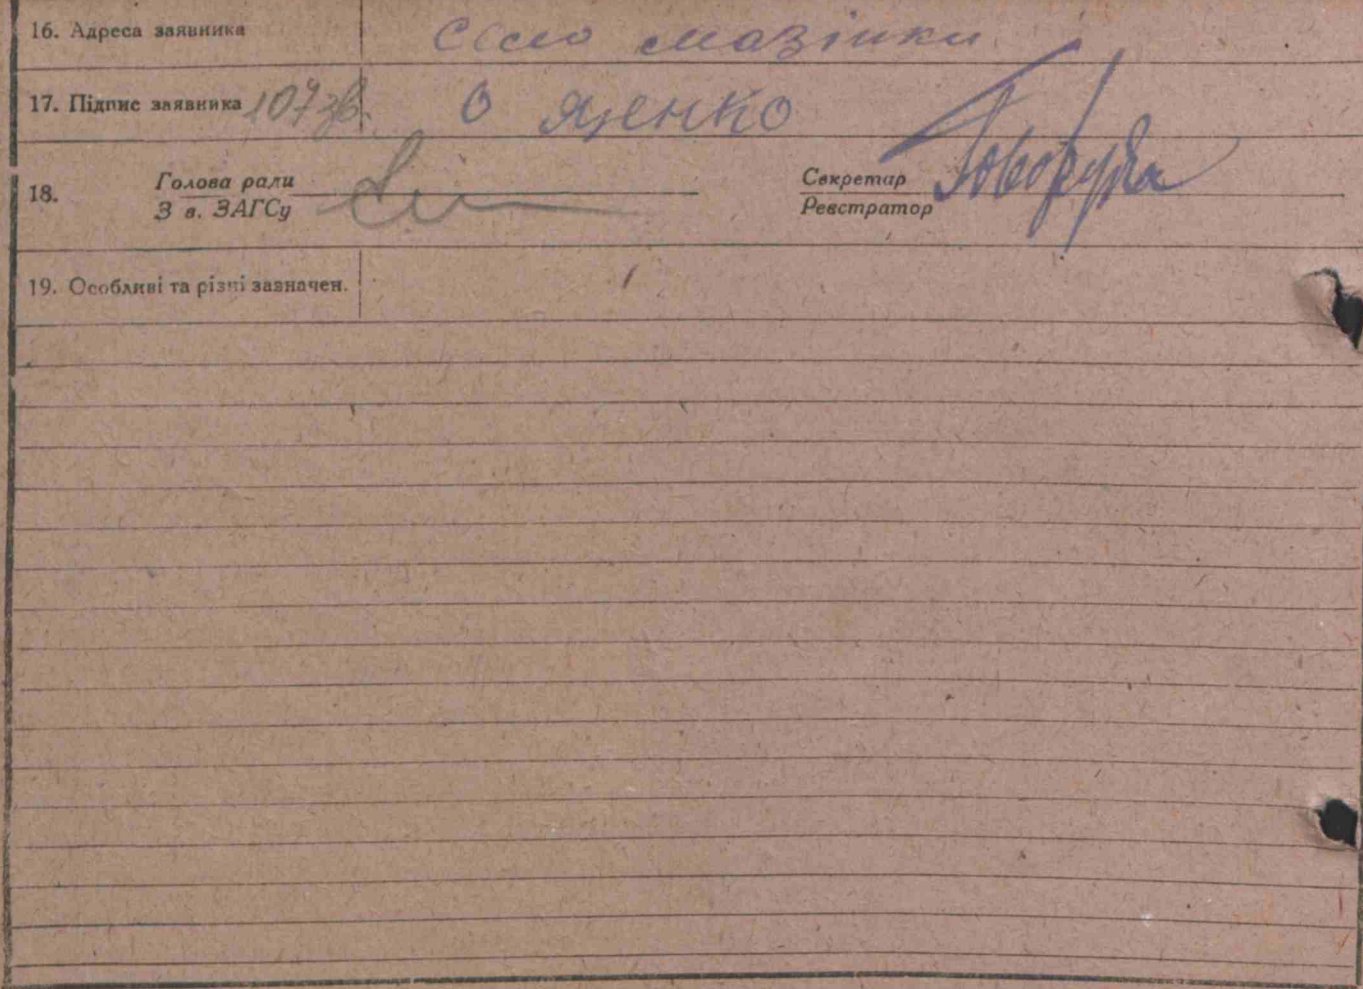 16. Адреса заявника село мазінки
17. Підпис заявника 107 зв. О яценко
18. Голова ради Секретар
З в. ЗАГСу Реєстратор
19. Особливі та різні зазначен.